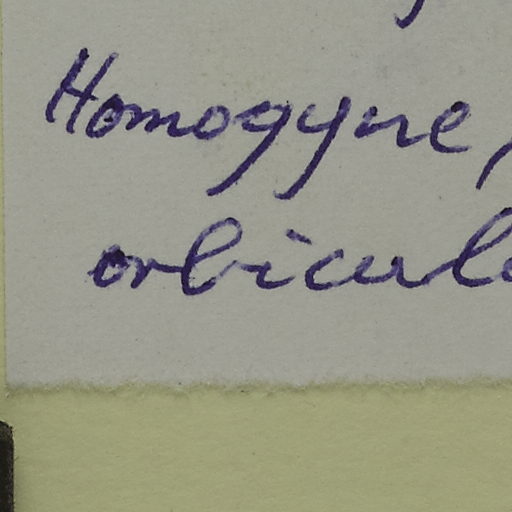 Homogyne,
orbicul